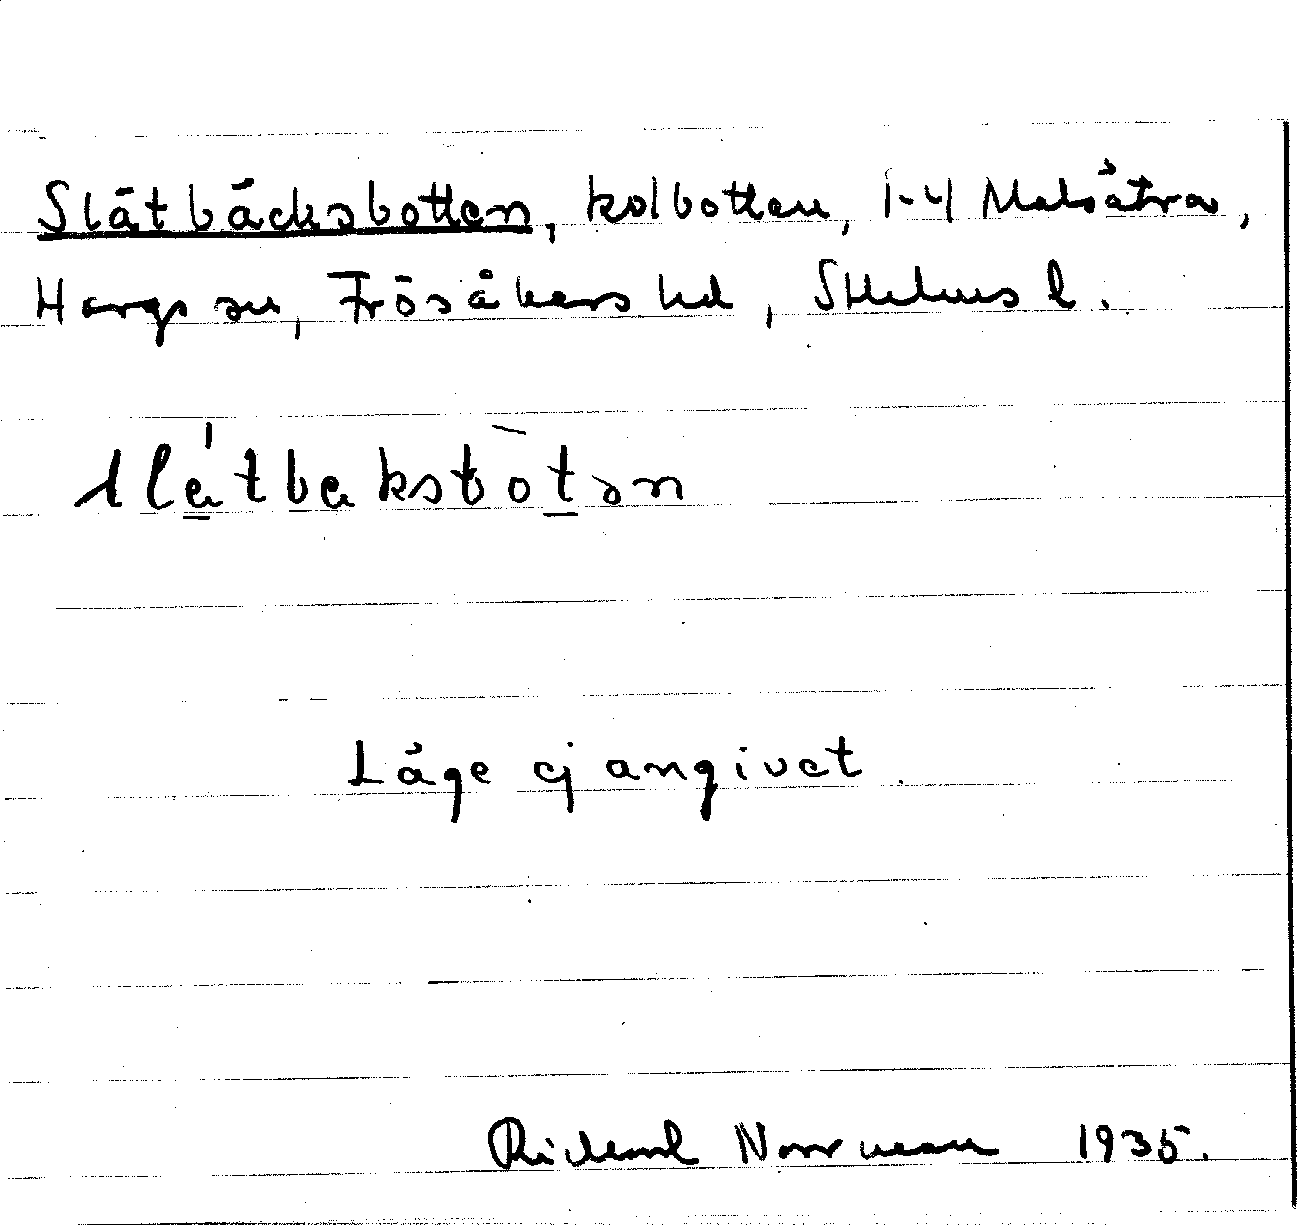 Slätbäcksbotten, kolbotten, 1-4 Malsätra,
Hargs sn, Frösåkers hd, Sthlms l.
slätbäksbòtən
Läge ej angivet.
Rickard Norrman 1935.